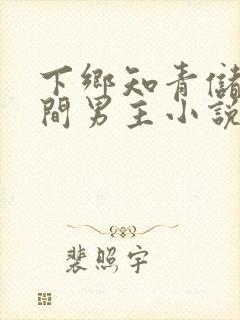 下鄉知青儲
間男主小説
裴照宇